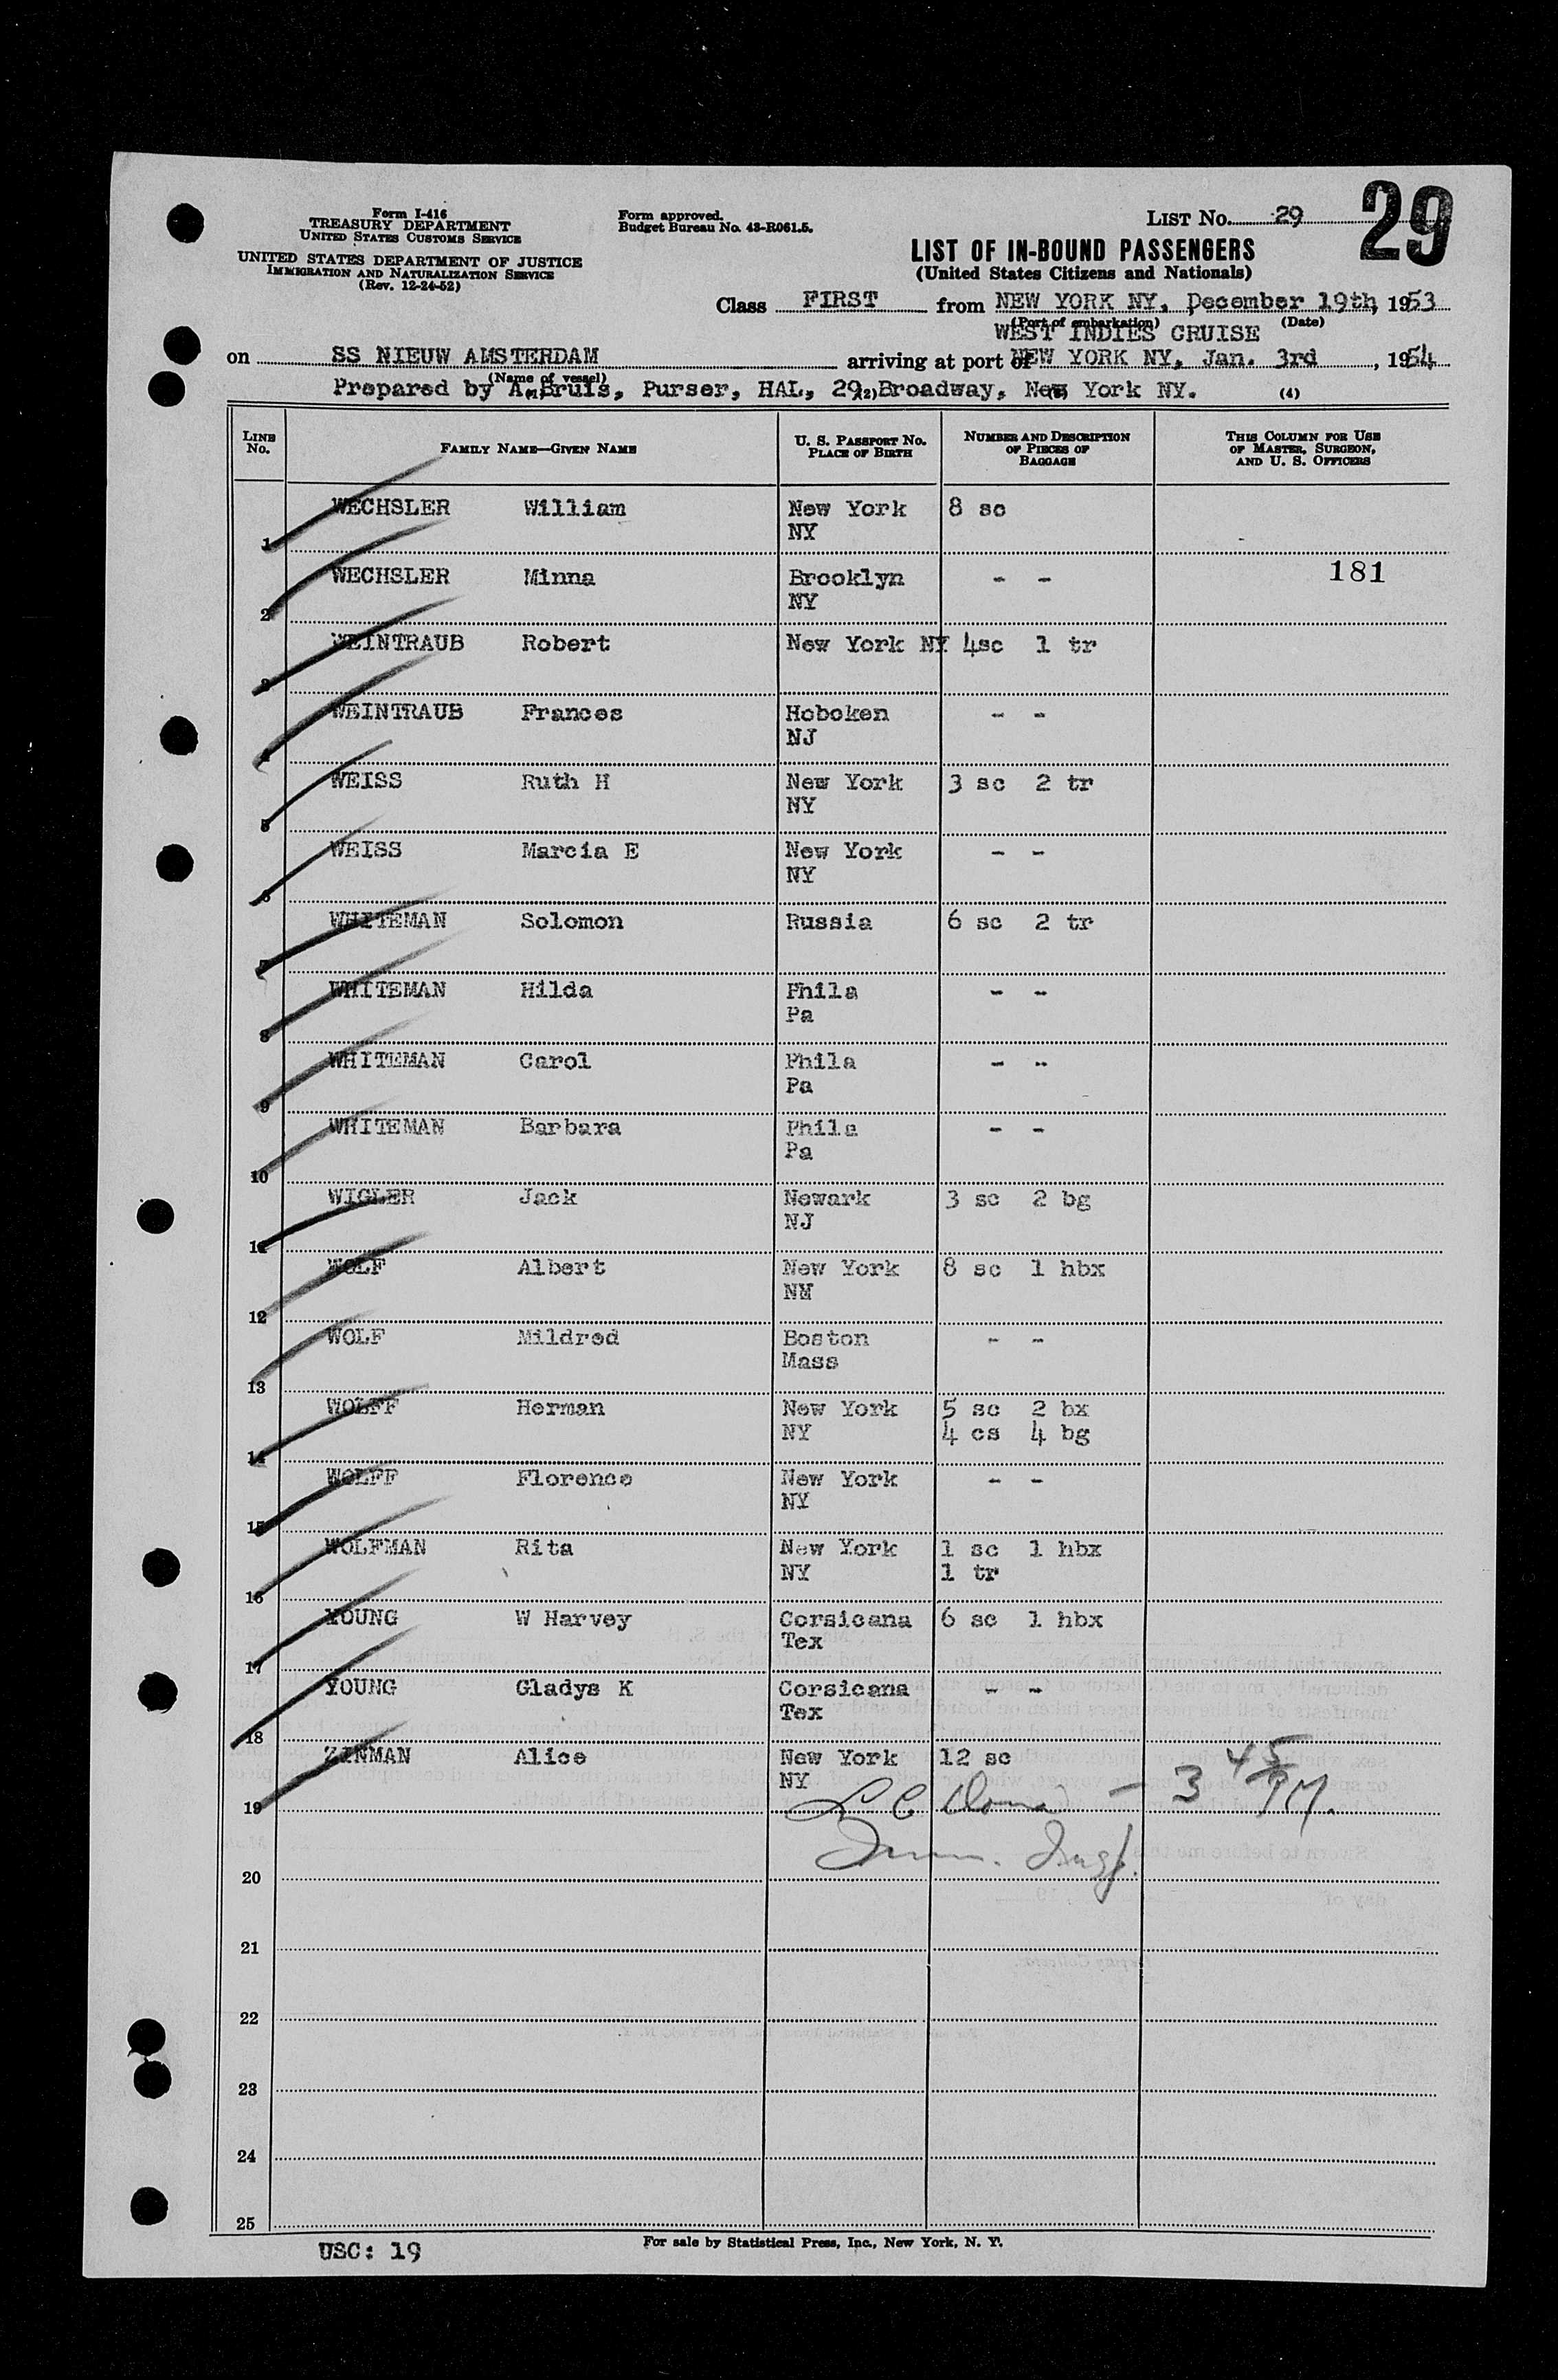 Form I-416
TREASURY DEPARTMENT
UNITED STATES CUSTOMS SERVICE
UNITED STATES DEPARTMENT OF JUSTICE
IMMIGRATION AND NATURALIZATION SERVICE
(Rev. 12-24-52)
Form approved.
Budget Bureau No. 43-R061.5.
LIST No. 29
29
LIST OF IN-BOUND PASSENGERS
(United States Citizens and Nationals)
Class FIRST from NEW YORK NY, December 19th, 1953
(Port of embarkation) (Date)
WEST INDIES CRUISE
on SS NIEUW AMSTERDAM arriving at port of NEW YORK NY, Jan. 3rd, 1954
(Name of vessel)
Prepared by A. Bruis, Purser, HAL, 29 Broadway, New York NY.
(2) (4)
LINE No. FAMILY NAME—GIVEN NAME U. S. PASSPORT NO. PLACE OF BIRTH NUMBER AND DESCRIPTION OF PIECES OF BAGGAGE THIS COLUMN FOR USE OF MASTER, SURGEON, AND U. S. OFFICERS
1 WECHSLER William New York NY 8 sc
2 WECHSLER Minna Brooklyn NY - - 181
3 WEINTRAUB Robert New York NY 4sc 1 tr
4 WEINTRAUB Frances Hoboken NJ - -
5 WEISS Ruth H New York NY 3 sc 2 tr
6 WEISS Marcia E New York NY - -
7 WHITEMAN Solomon Russia 6 sc 2 tr
8 WHITEMAN Hilda Phila Pa - -
9 WHITEMAN Carol Phila Pa - -
10 WHITEMAN Barbara Phila Pa - -
11 WIGLER Jack Newark NJ 3 sc 2 bg
12 WOLF Albert New York NM 8 sc 1 hbx
13 WOLF Mildred Boston Mass - -
14 WOLFF Herman New York NY 5 sc 2 bx 4 cs 4 bg
15 WOLFF Florence New York NY - -
16 WOLFMAN Rita New York NY 1 sc 1 hbx 1 tr
17 YOUNG W Harvey Corsicana Tex 6 sc 1 hbx
18 YOUNG Gladys K Corsicana Tex - -
19 ZINMAN Alice New York NY 12 sc
- 3 45 PM.
Imm. Insp.
20
21
22
23
24
25
USC: 19
For sale by Statistical Press, Inc., New York, N. Y.